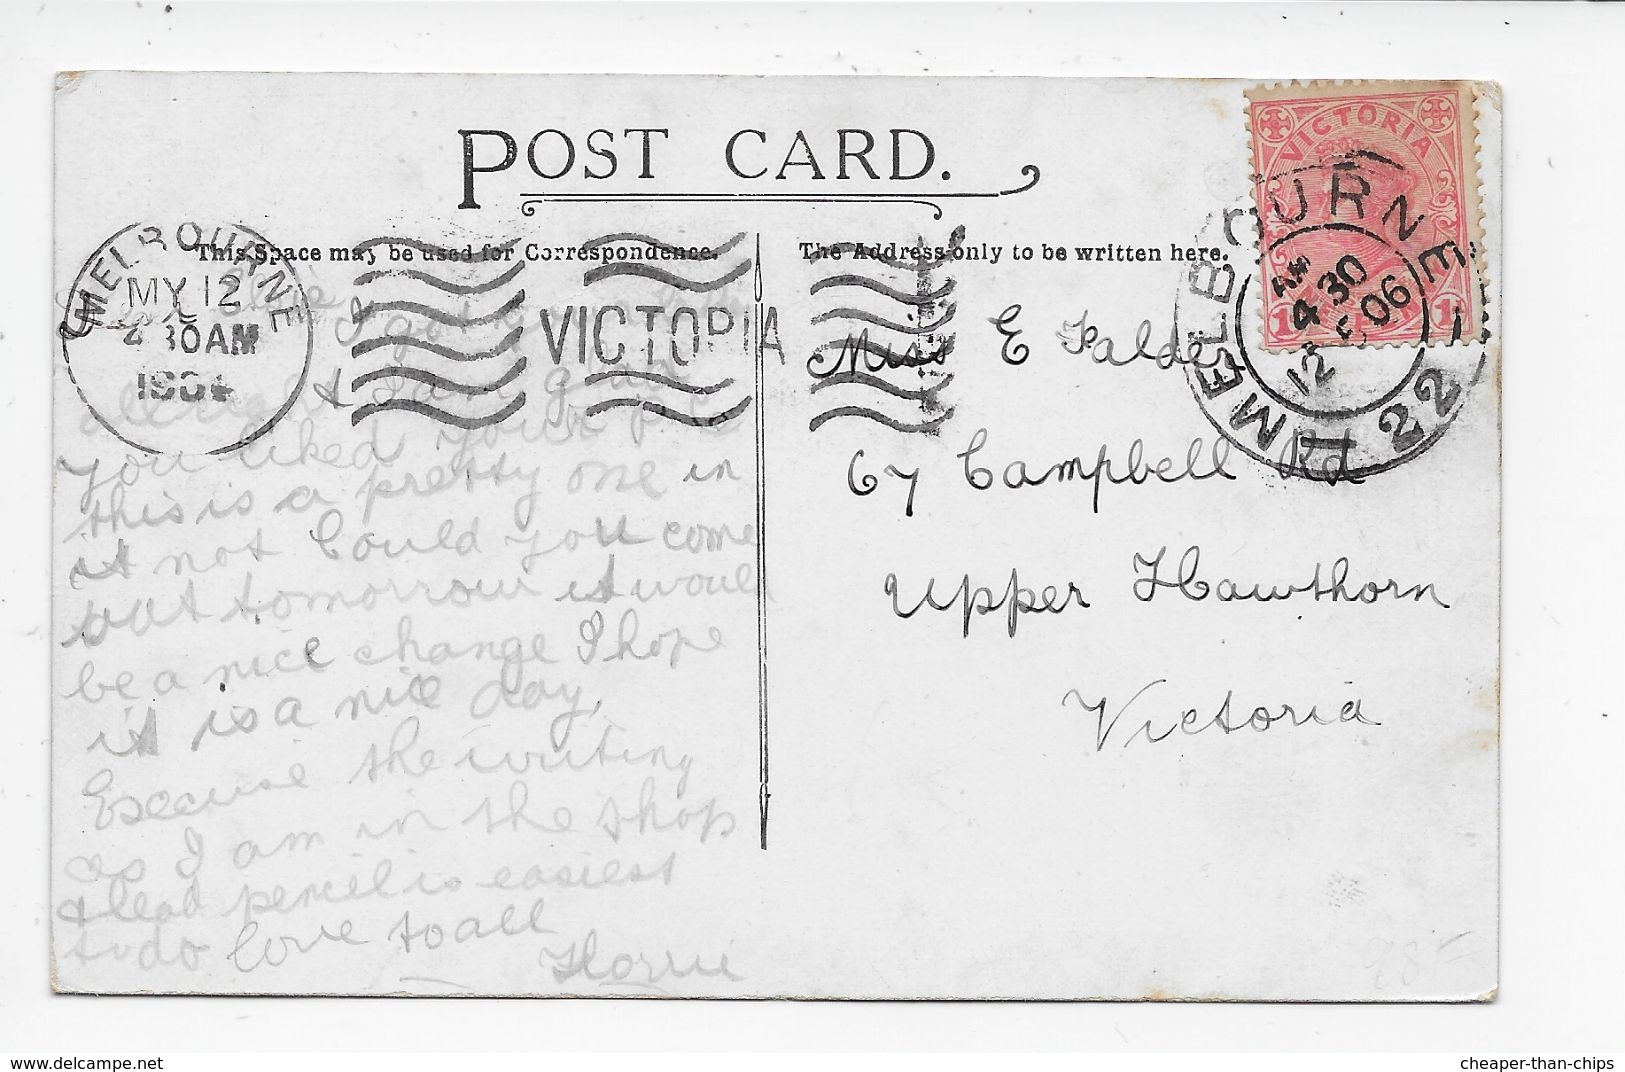 POST CARD.
This Space may be used for Correspondence.
The Address only to be written here.
MELBOURNE
MY 12
4 30AM
VICTORIA
VICTORIA
MELBOURNE
AM
4 30
12 5 06
22
I got
all right I am glad
you liked your
this is a pretty one in
it not Could you come
out tomorrow it would
be a nice change I hope
it is a nice day,
Excuse the writing
as I am in the shop
& lead pencil is easiest
to do love to all
Florrie
Miss E
67 Campbell Rd
Upper Hawthorn
Victoria
98
delcampe.net
cheaper-than-chips